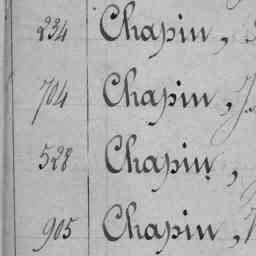 234 Chapin,
704 Chapin, J
528 Chapin,
905 Chapin,